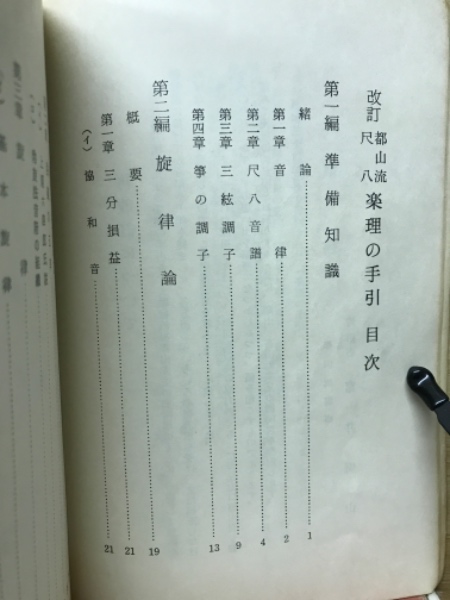 改訂 都山流尺八 楽理の手引 目次
第一編 準備知識
緒論……1
第一章 音律……2
第二章 尺八音譜……4
第三章 三絃調子……9
第四章 箏の調子……13
第二編 旋律論……19
概要……21
第一章 三分損益……21
(イ) 協和音